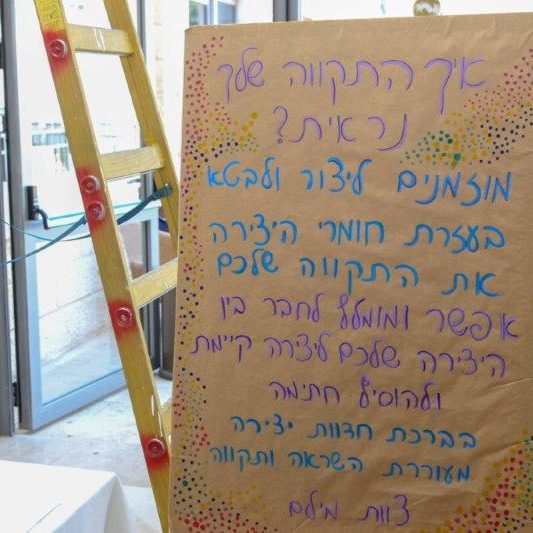 איך התקווה שלך
נראית?
מוזמנים ליצור ולבטא
בעזרת חומרי היצירה
את התקווה שלכם
אפשר ומומלץ לחבר בין
היצירה שלכם ליצרה קיימת
ולהוסיף חתימה
בברכת חדוות יצירה
מעוררת השראה ותקווה
צוות מילם